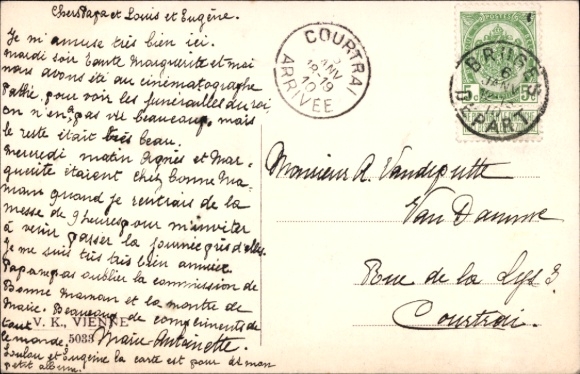 Chers Papa et Louis et Eugène.
Je m'amuse très bien ici.
Mardi soir tante Marguerite et moi
nous avons été au cinématographe
Pathé, pour voir les funérailles du roi,
on n'en a pas vu beaucoup, mais
le reste était très beau.
Mercredi matin Agnès et Mar-
guerite étaient chez bonne Ma-
man quand je rentrais de la
messe de 9 heures pour m'inviter
à venir passer la journée près d'elles.
Je me suis très très bien amusée.
Papa pas oublier la commission de
Bonne Maman et la montre de
Marie. Beaucoup de compliments de
tout
le monde. Marie-Antoinette.
Loulou et Eugène la carte est pour mon
petit album.
V. K., VIENNE
5033
COURTRAI
JANV
18-19
10
ARRIVÉE
BRUGES
DÉPART
5c 5c
Monsieur A. Vandeputte
Van Damme
Rue de la Lys 3.
Courtrai.